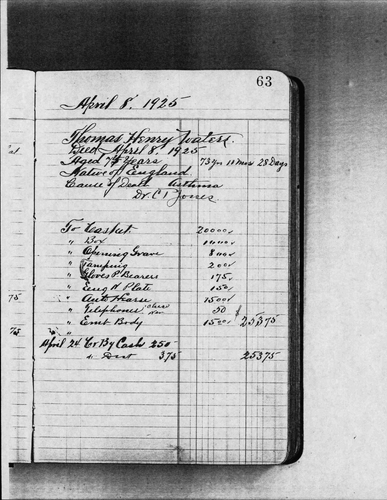 63
April 8, 1925
Thomas Henry Waters.
Died April 8, 1925
Aged 74 Years 73 Yrs 11 Mos 28 Days
Native of England
Cause of Death Asthma
Dr. C T Jones
To Casket 20000
" Box
" Opening Grave 800
" Tamping 200
" Gloves P. Bearers 175
" Eng N. Plate 150
75 " Auto Hearse 1500
" Telephones 50
" Emb Body 1500 $ 25375
75 "
April 24 Cr By Cash 250
" Disct 375 25375